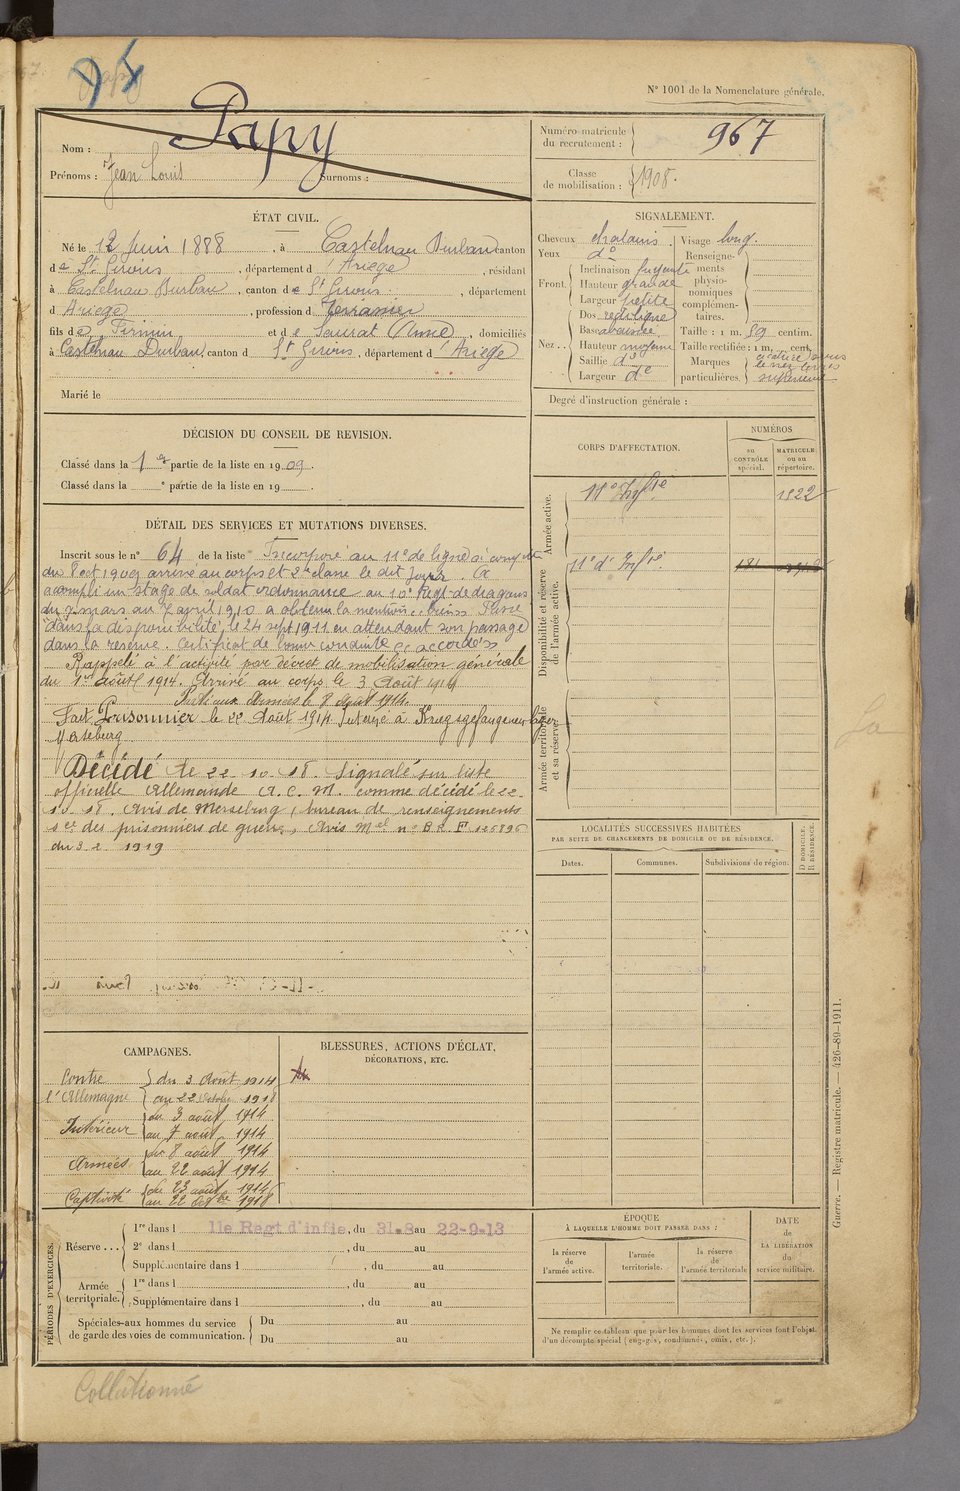 N° 1001 de la Nomenclature générale.
Nom : Papy
Prénoms : Jean Louis Surnoms :
Numéro matricule du recrutement : 967
Classe de mobilisation : 1908.
ÉTAT CIVIL.
Né le 12 Juin 1888, à Castelnau Durban canton
de St Girons, département d'Ariège, résidant
à Castelnau Durban, canton de St Girons, département
d Ariège, profession d
fils de Firmin et de Seurat (Anne) domiciliés
à Castelnau Durban, canton d St Girons, département d'Ariège
Marié le
SIGNALEMENT.
Cheveux chatains. Visage long.
Yeux do Renseignements physionomiques complémentaires.
Front. Inclinaison fuyante
Hauteur grande
Largeur petite
Nez.. Dos rectiligne
Base abaissée Taille : 1 m. 59 centim.
Hauteur moyenne Taille rectifiée : 1 m. cent.
Saillie do Marques particulières. cicatrice sous
Largeur do le nez lèvres
supérieure
Degré d'instruction générale :
DÉCISION DU CONSEIL DE REVISION.
Classé dans la 1re partie de la liste en 1909.
Classé dans la e partie de la liste en 19
CORPS D'AFFECTATION.
NUMÉROS
au CONTRÔLE spécial.
MATRICULE ou au répertoire.
Armée active.
11e Infie 1522
Disponibilité et réserve de l'armée active.
11e d'Infie. 181
Armée territoriale et sa réserve.
DÉTAIL DES SERVICES ET MUTATIONS DIVERSES.
Inscrit sous le n° 64 de la liste Incorporé au 11e de ligne à compter
du 8 oct 1909 arrivé au corps et 2e classe le dit jour. A
accompli un stage de soldat ordonnance au 10e Régt de dragons
du 7 mars au 7 avril 1910 a obtenu la mention "bien" Passé
dans la disponibilité, le 24 sept 1911 en attendant son passage
dans la réserve. Certificat de bonne conduite "accordé"
Rappelé à l'activité par décret de mobilisation générale
du 1er Août 1914. Arrivé au corps le 3 Août 1914
Parti aux Armées le 8 Août 1914.
Fait Prisonnier le 22 Août 1914 Interné à Kriegsgefangenenlager
Merseburg
Décédé le 22.10.18. Signalé sur liste
officielle Allemande A.C.M. comme décédé le 22
10.18. Avis de Merseburg, bureau de renseignements
sce des prisonniers de guerre, Avis Mel n° B.R.F 125895
du 3.2.1919
LOCALITÉS SUCCESSIVES HABITÉES
PAR SUITE DE CHANGEMENTS DE DOMICILE OU DE RÉSIDENCE.
Dates. Communes. Subdivisions de région.
D DOMICILE. R RÉSIDENCE.
CAMPAGNES.
Contre l'Allemagne du 3 Août 1914
au 22 Octobre 1918
Intérieur du 3 août 1914
au 7 août 1914
Armées du 8 août 1914
au 22 août 1914
Captivité du 23 août 1914
au 22 Octbre 1918
BLESSURES, ACTIONS D'ÉCLAT,
DÉCORATIONS, ETC.
PÉRIODES D'EXERCICES.
Réserve ... 1re dans l 11e Regt d'infie, du 31.8 au 22-9-13
2e dans l , du au
Supplémentaire dans l , du au
Armée territoriale. 1re dans l , du au
Supplémentaire dans l , du au
Spéciales aux hommes du service
de garde des voies de communication. Du au
Du au
ÉPOQUE
À LAQUELLE L'HOMME DOIT PASSER DANS :
la réserve de l'armée active.
l'armée territoriale.
la réserve de l'armée territoriale
DATE de LA LIBÉRATION du service militaire.
Ne remplir ce tableau que pour les hommes dont les services font l'objet
d'un décompte spécial (engagés, condamnés, omis, etc.).
Guerre. — Registre matricule. — 426-89-1911.
Collationné